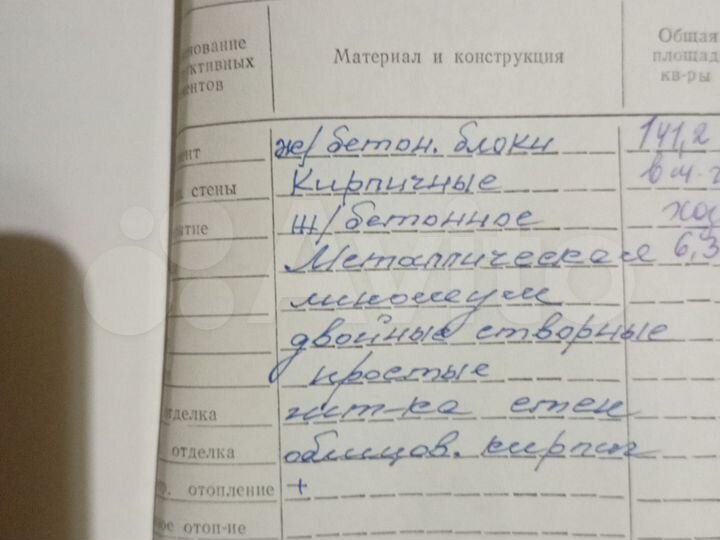 нование Материал и конструкция Общая
ктивных площад
ентов кв-ры
ент ж/бетон. блоки 141,2
стены Кирпичные в т.ч
тие ж/бетонное
Металлическая 6,3
линолеум
двойные створные
простые
отделка шт-ка стен
отделка облицов. кирпич
отопление +
ое отоп-ие
Avito